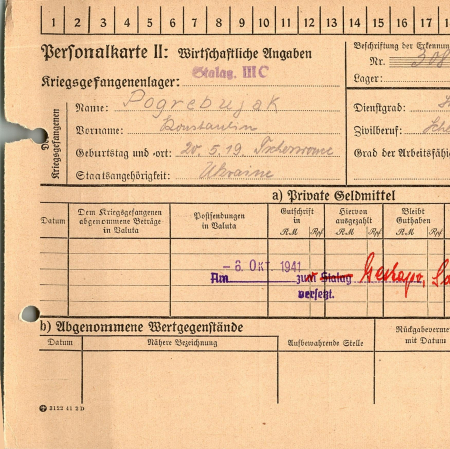 1 2 3 4 5 6 7 8 9 10 11 12 13 14 15 16 17 1
Personalkarte II: Wirtschaftliche Angaben
Beschriftung der Erkennun
Nr. 308
Kriegsgefangenenlager: Stalag. III C
Lager:
Des Kriegsgefangenen
Name: Pogrebnjak
Dienstgrad:
Vorname: Konstantin
Zivilberuf:
Geburtstag und -ort: 20.5.19
Grad der Arbeitsfähi
Staatsangehörigkeit: Ukraine
a) Private Geldmittel
Datum
Dem Kriegsgefangenen abgenommene Beträge in Valuta
Postsendungen in Valuta
Gutschrift in
RM Rpf
Hiervon ausgezahlt
RM Rpf
Bleibt Guthaben
RM Rpf
- 6. OKT. 1941
Am zum Stalag Gestapo,
versetzt.
b) Abgenommene Wertgegenstände
Datum
Nähere Bezeichnung
Aufbewahrende Stelle
Rückgabeverme
mit Datum
3122 41 2 D